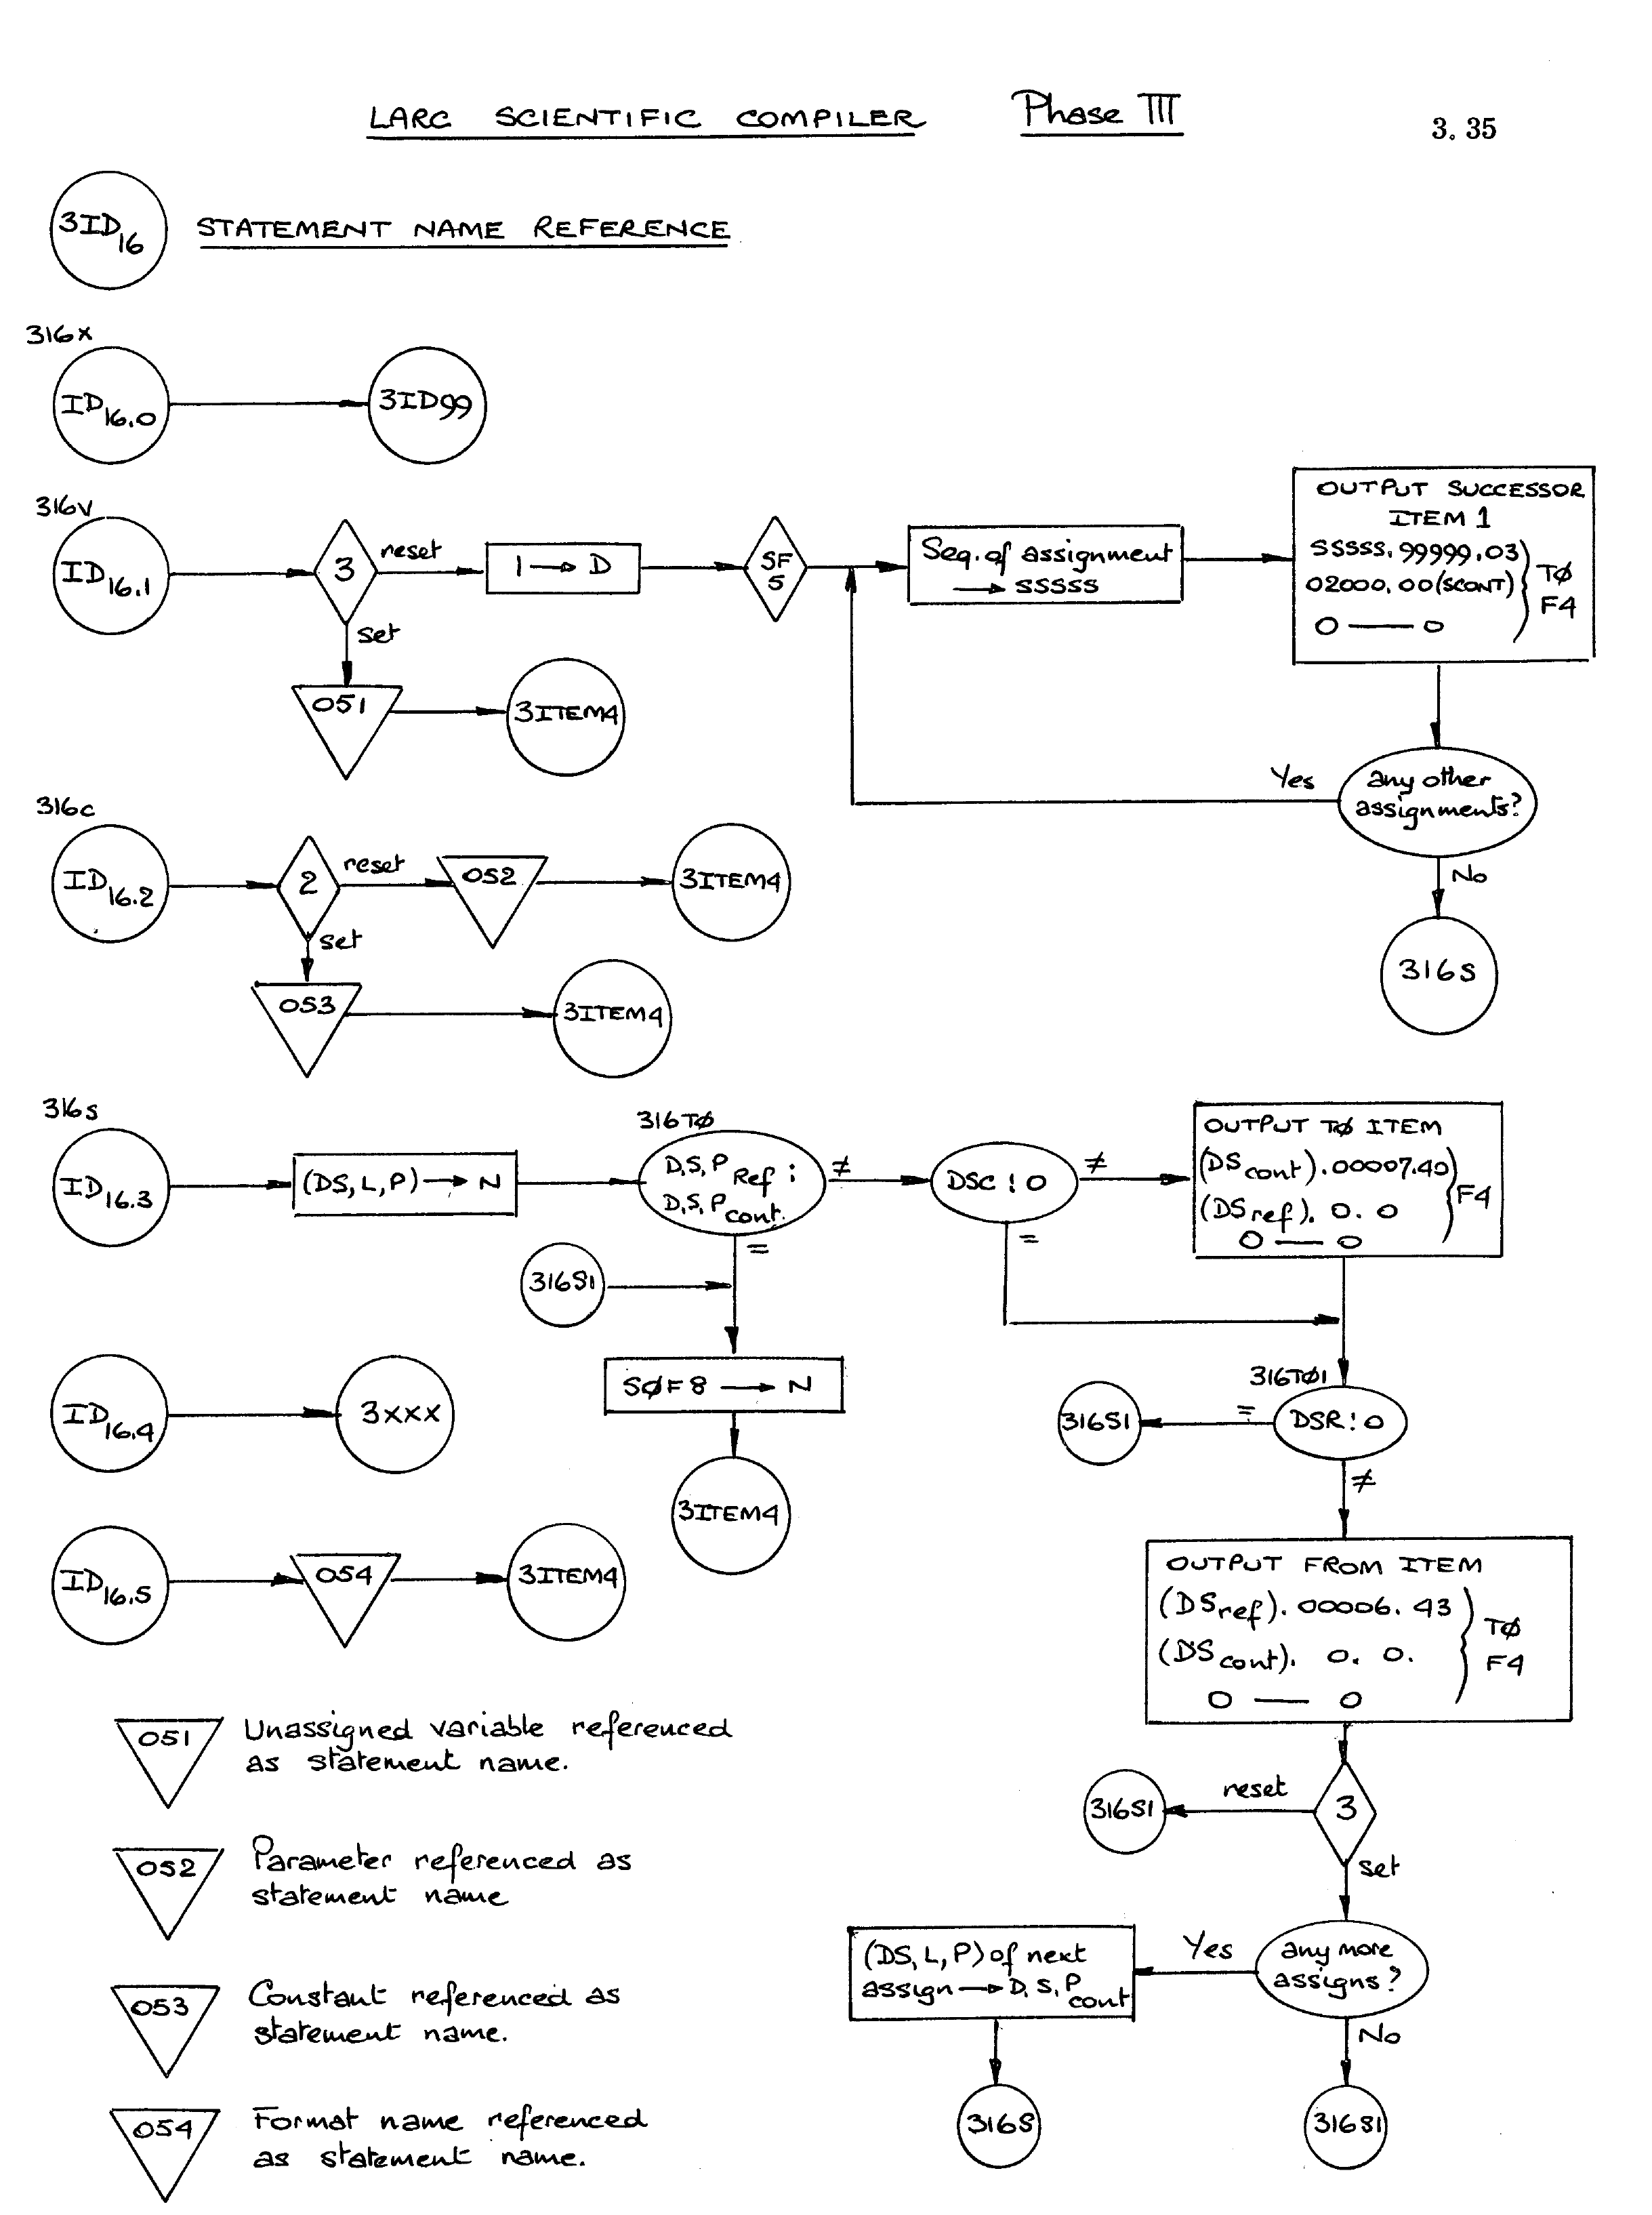 LARC SCIENTIFIC COMPILER Phase III
3.35
3ID16
STATEMENT NAME REFERENCE
316x
ID16.0
3ID99
316v
ID16.1
3
reset
1 → D
SF
5
Seq. of assignment
→ SSSSS
OUTPUT SUCCESSOR
ITEM 1
SSSSS.99999.03
02000.00(SCONT)
0 — 0
TØ
F4
set
051
3ITEM4
Yes
any other
assignments?
No
316S
316c
ID16.2
2
reset
052
3ITEM4
set
053
3ITEM4
316s
ID16.3
(DS,L,P) → N
316TØ
D,S,P Ref :
D,S,P cont.
≠
DSC ! 0
≠
OUTPUT TØ ITEM
(DS cont).00007.40
(DS ref). 0. 0
0 — 0
F4
=
=
316S1
SØF8 → N
3ITEM4
ID16.4
3xxx
316TØ1
DSR ! 0
=
316S1
≠
ID16.5
054
3ITEM4
OUTPUT FROM ITEM
(DS ref). 00006. 43
(DS cont). 0. 0.
0 — 0
TØ
F4
3
reset
316S1
set
any more
assigns?
Yes
(DS, L, P) of next
assign → D,S,P cont
316S
No
316S1
051
Unassigned variable referenced
as statement name.
052
Parameter referenced as
statement name
053
Constant referenced as
statement name.
054
Format name referenced
as statement name.